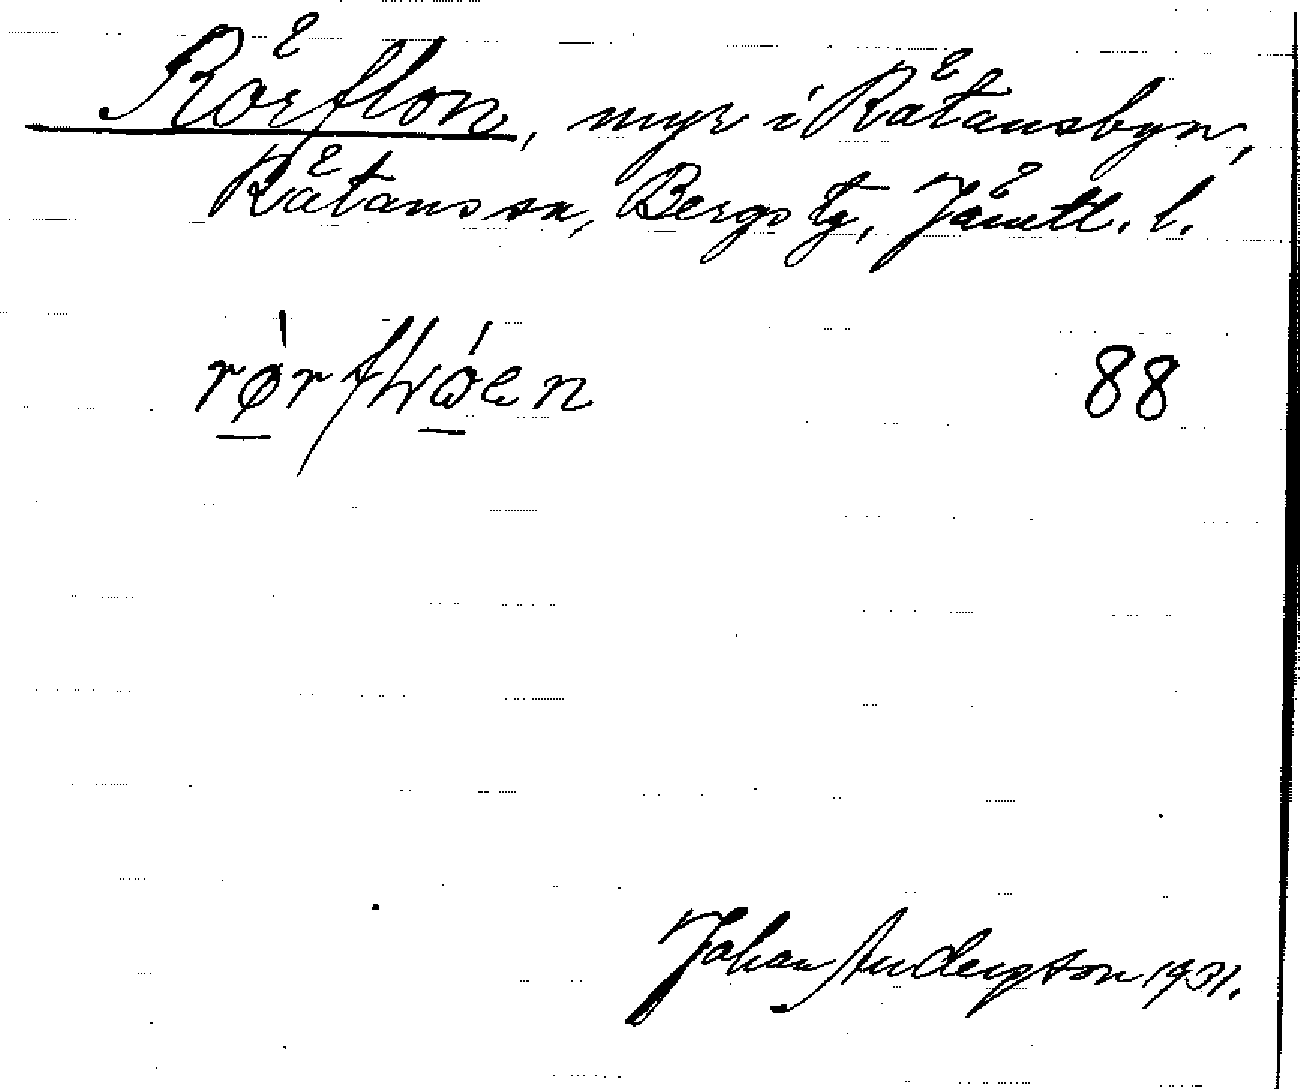 Rörflon, myr i Rätansbyn,
Rätans sn, Bergs tg, Jämtl. l.
rørflωen 88
Johan Anderston 1931.